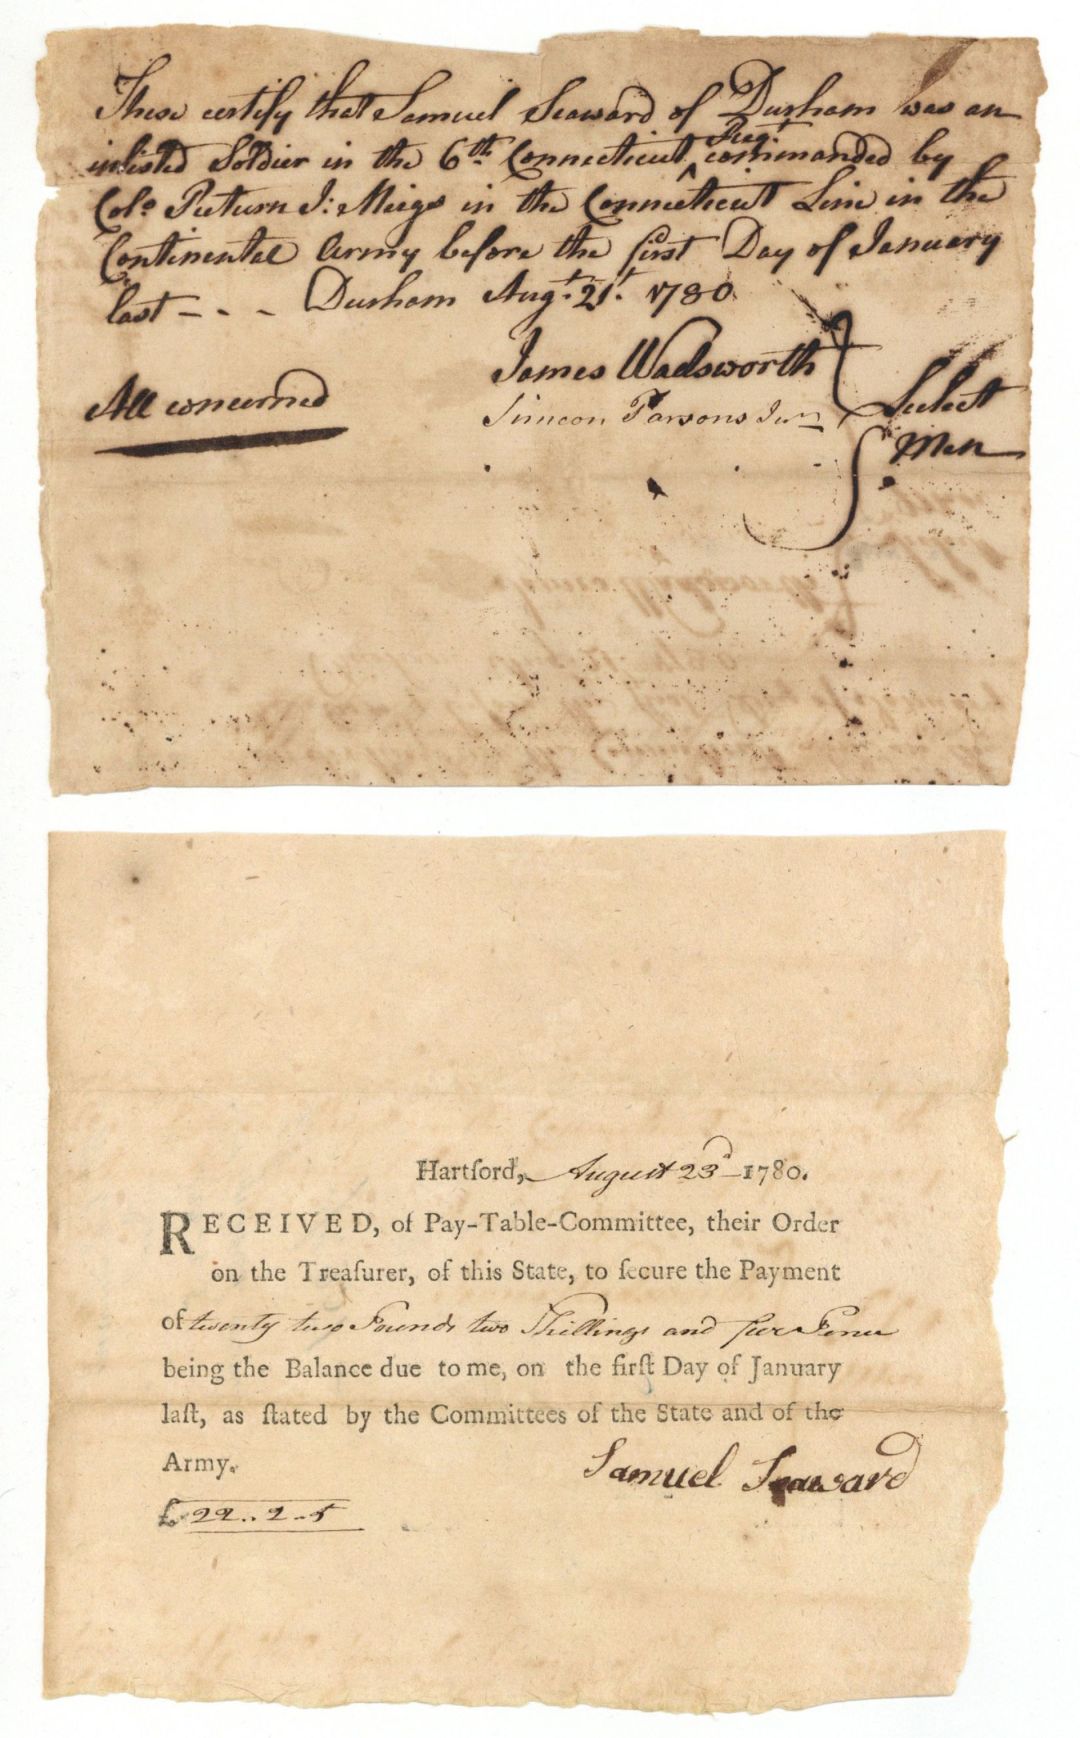 These certify that Samuel Seaward of Durham was an
inlisted Soldier in the 6th Connecticut ^ Regt commanded by
Colo Return J: Meigs in the Connecticut Line in the
Continental Army before the first Day of January
last - - - Durham Augt. 21t. 1780
James Wadsworth
Simeon Parsons Jun
Select
Men
All concerned
Hartford, August 23d 1780.
RECEIVED, of Pay-Table-Committee, their Order
on the Treaſurer, of this State, to ſecure the Payment
of twenty two Pounds two Shillings and five Pence
being the Balance due to me, on the firſt Day of January
laſt, as ſtated by the Committees of the State and of the
Army.
Samuel Seaward
£ 22 .. 2 .. 5